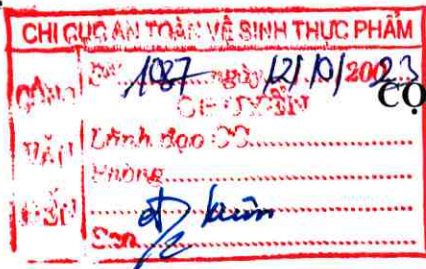 CHI CỤC AN TOÀN VỆ SINH THỰC PHẨM
CÔNG VĂN ĐẾN
Số: 1087 ngày 12/10/2023
CHUYỂN
Lãnh đạo CC
Phòng
CỘ